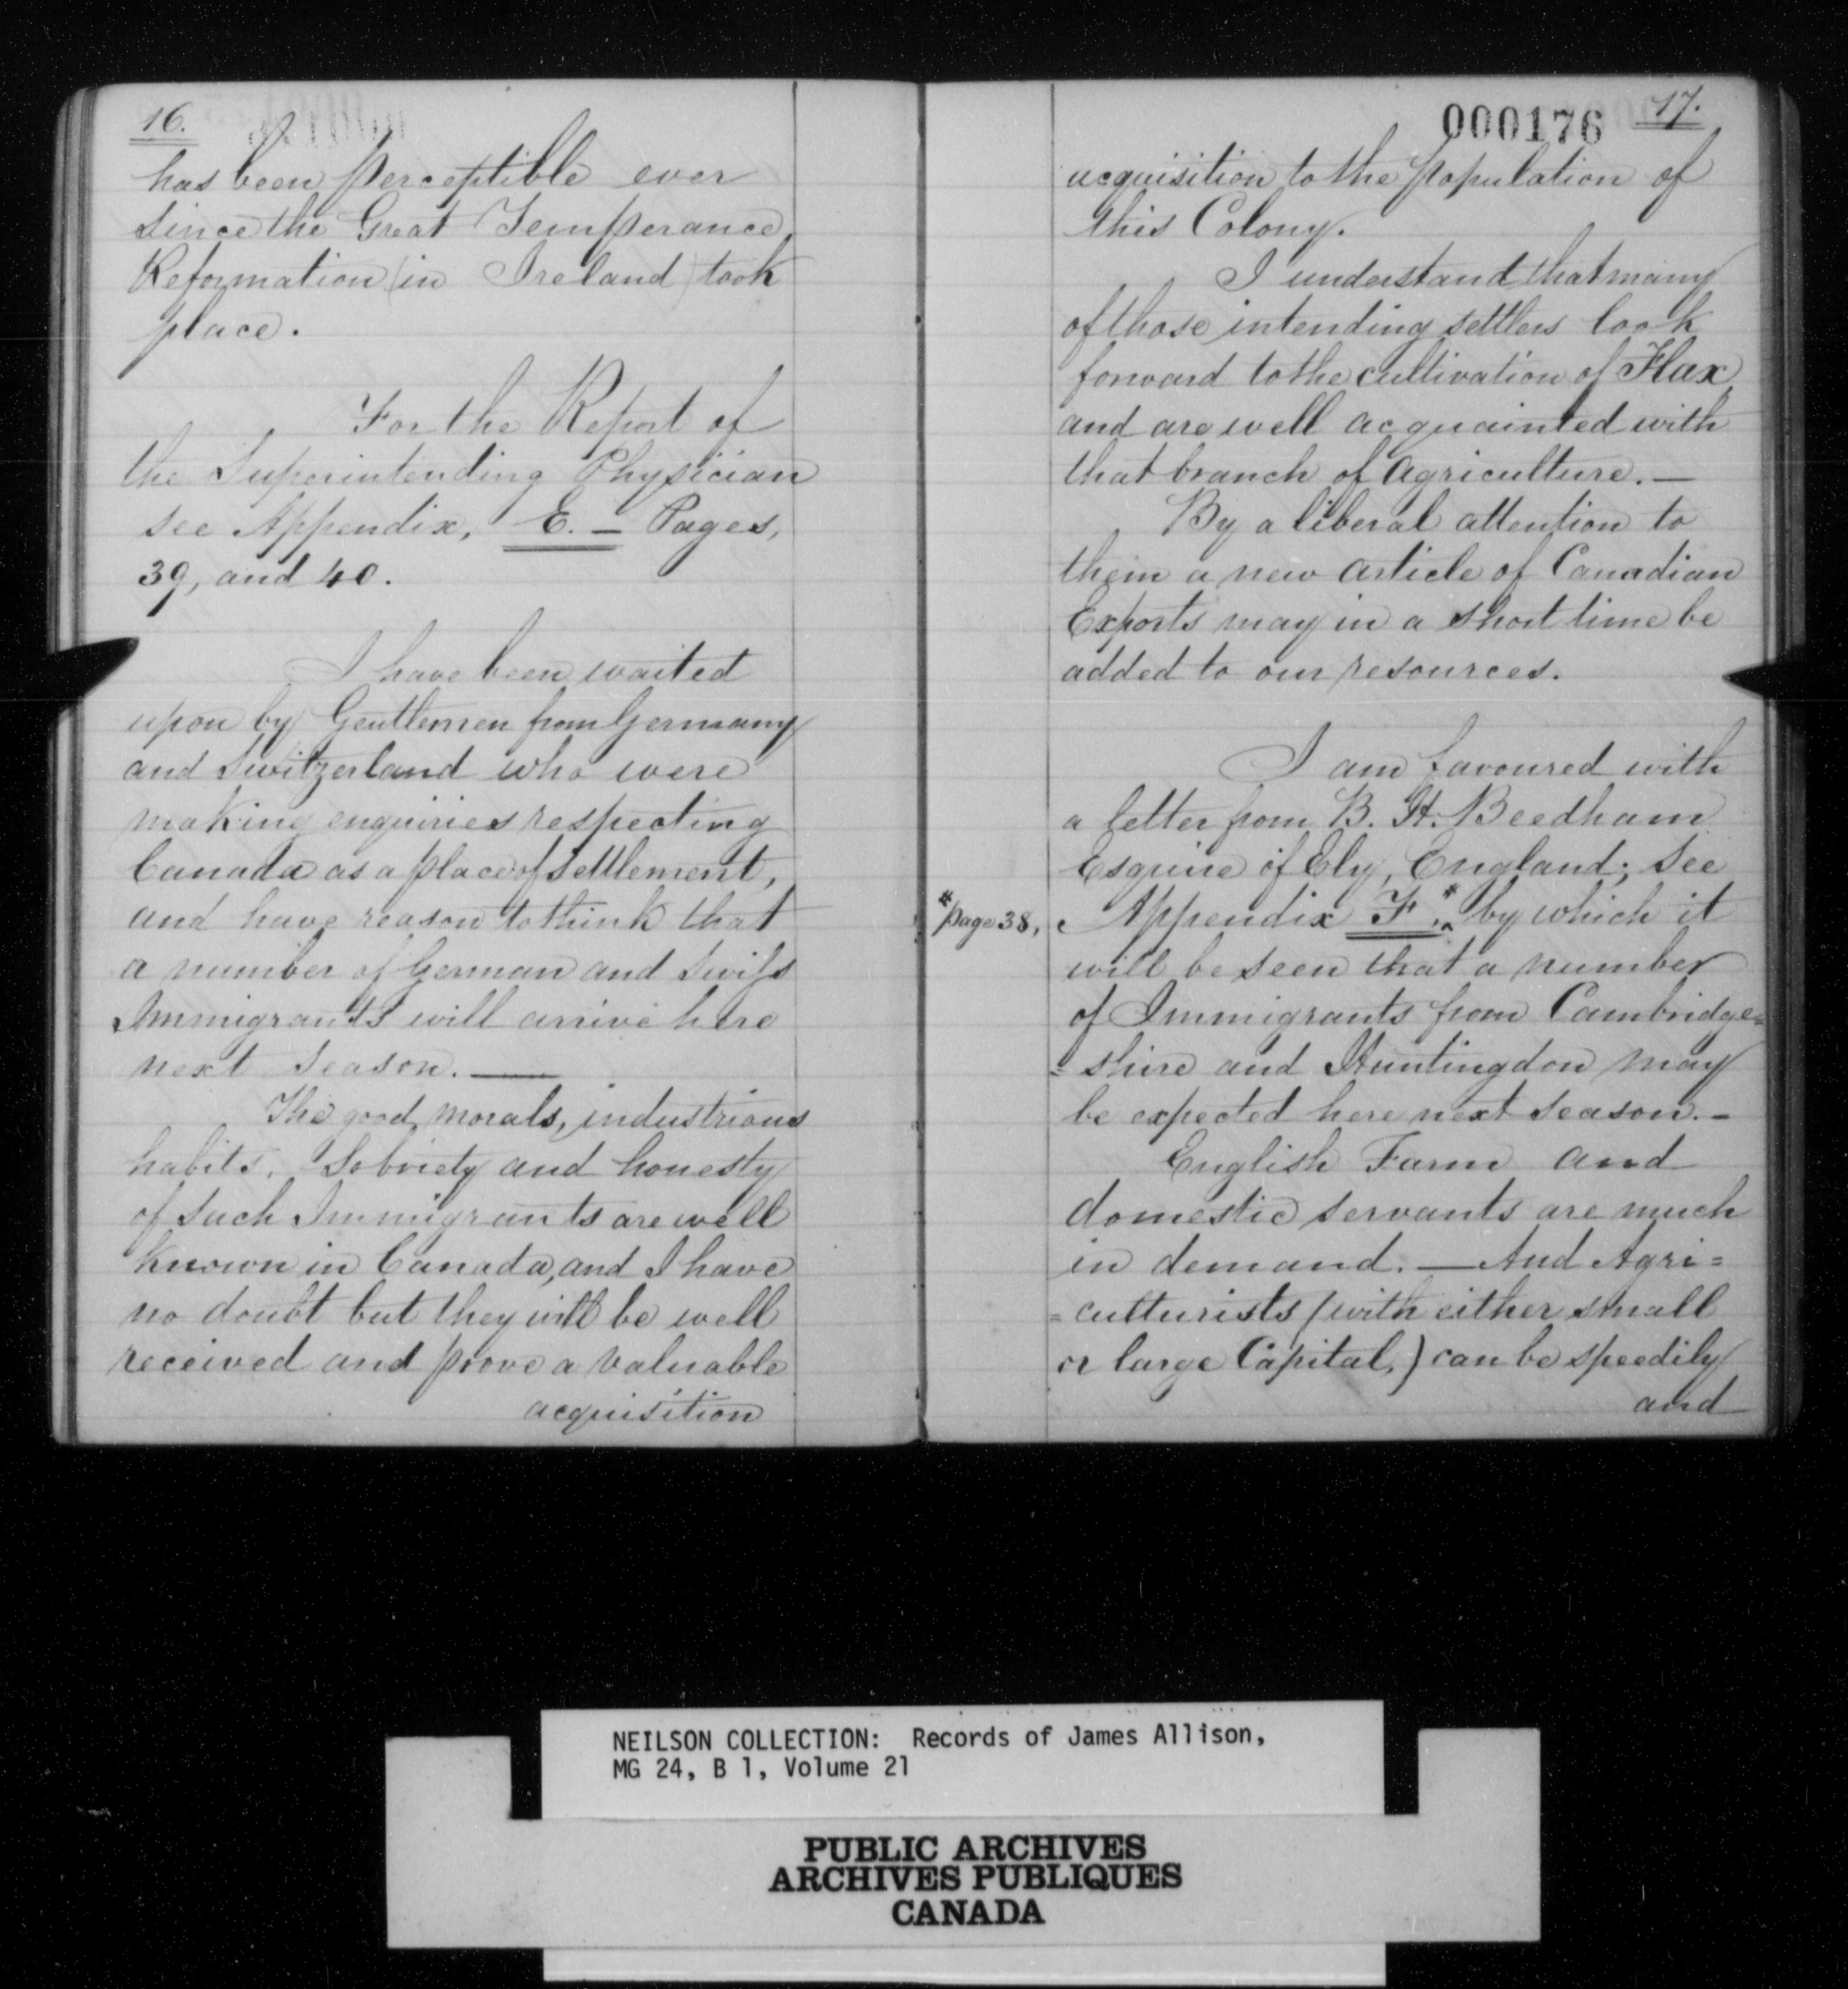 16.
has been perceptible ever
since the Great Temperance
Reformation (in Ireland) took
place.
For the Report of
the Superintending Physician
see Appendix, E. — Pages,
39, and 40.
I have been waited
upon by Gentlemen from Germany
and Switzerland who were
making enquiries respecting
Canada as a place of settlement,
and have reason to think that
a number of German and Swiss
Immigrants will arrive here
next Season. —
The good morals, industrious
habits, Sobriety and honesty
of such Immigrants are well
known in Canada, and I have
no doubt but they will be well
received and prove a valuable
acquisition
000176
17.
acquisition to the population of
this Colony.
I understand that many
of those intending settlers look
forward to the cultivation of Flax,
and are well acquainted with
that branch of agriculture. —
By a liberal attention to
them a new article of Canadian
Exports may in a short time be
added to our resources.
I am favoured with
a letter from B. H. Beedham
Esquire of Ely, England; see
* page 38,
Appendix F.* by which it
will be seen that a number
of Immigrants from Cambridge=
=shire and Huntingdon may
be expected here next season. —
English Farm and
domestic servants are much
in demand. — And Agri=
=culturists (with either small
or large Capital,) can be speedily
and
NEILSON COLLECTION: Records of James Allison,
MG 24, B 1, Volume 21
PUBLIC ARCHIVES
ARCHIVES PUBLIQUES
CANADA